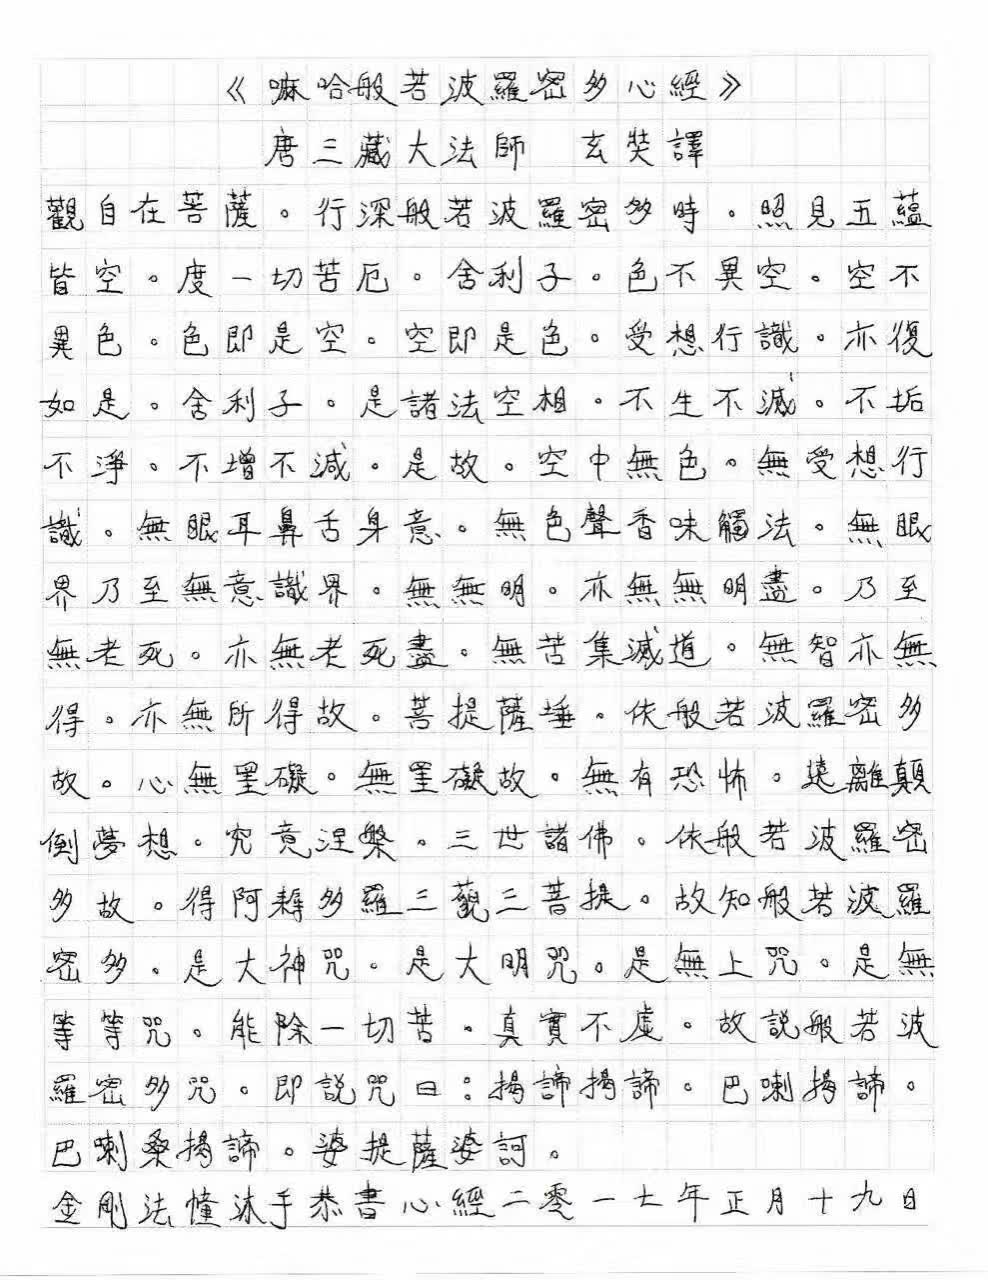 《嘛哈般若波羅密多心經》
唐三藏大法師 玄奘譯
觀自在菩薩。行深般若波羅密多時。照見五蘊
皆空。度一切苦厄。舍利子。色不異空。空不
異色。色即是空。空即是色。受想行識。亦復
如是。舍利子。是諸法空相。不生不滅。不垢
不淨。不增不減。是故。空中無色。無受想行
識。無眼耳鼻舌身意。無色聲香味觸法。無眼
界乃至無意識界。無無明。亦無無明盡。乃至
無老死。亦無老死盡。無苦集滅道。無智亦無
得。亦無所得故。菩提薩埵。依般若波羅密多
故。心無罣礙。無罣礙故。無有恐怖。遠離顛
倒夢想。究竟涅槃。三世諸佛。依般若波羅密
多故。得阿耨多羅三藐三菩提。故知般若波羅
密多。是大神咒。是大明咒。是無上咒。是無
等等咒。能除一切苦。真實不虛。故説般若波
羅密多咒。即説咒曰：揭諦揭諦。巴喇揭諦。
巴喇桑揭諦。婆提薩婆訶。
金剛法幢沐手恭書心經二零一七年正月十九日